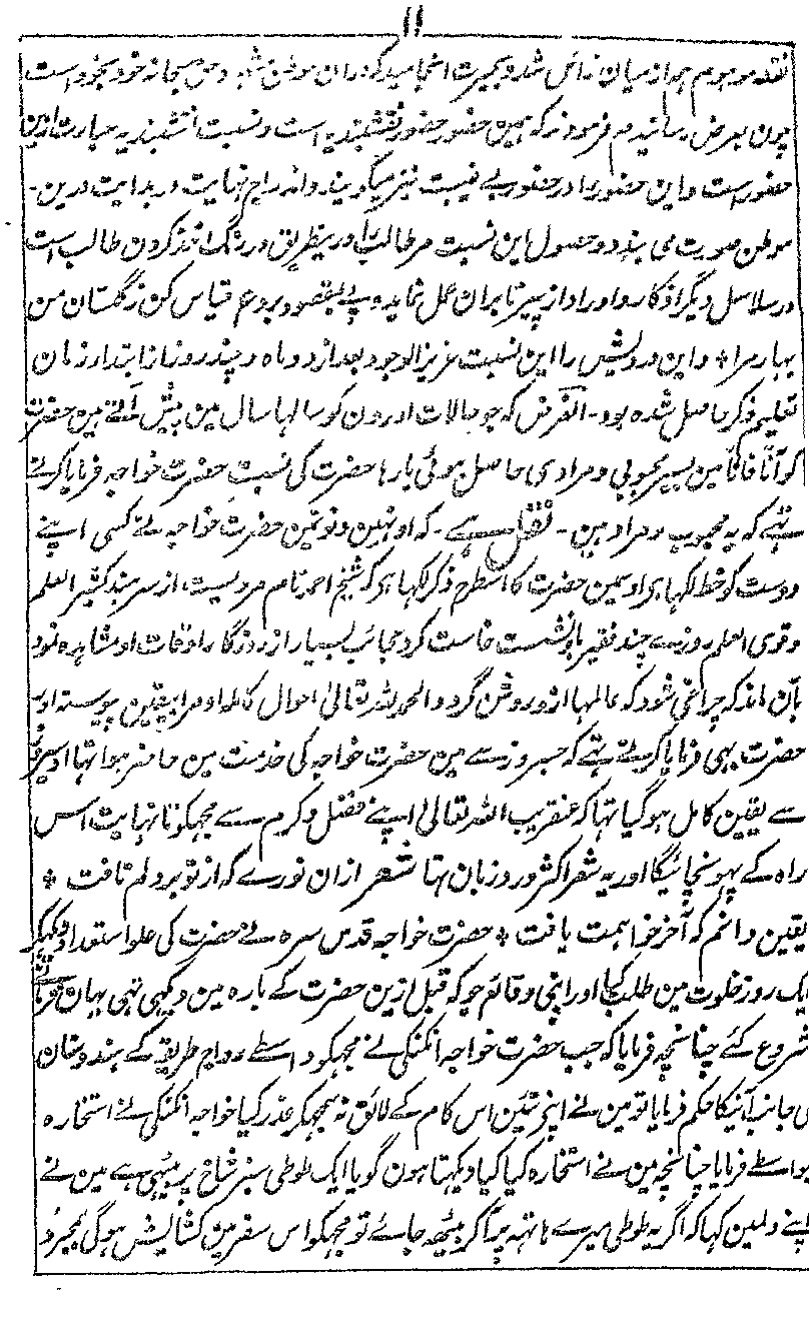 ۱۱
نقطہ موہوم ہم از میان زائل شد و بحیرت انجامید کہ دران موطن شہود حق سبحانہ خود بخود است
چون بعرض رسانیدم فرمودند کہ ہمین حضور حضور نقشبندیہ است و نسبت نقشبندیہ عبارت ازین
حضور است و این حضور را حضور بے غیبت نیز میگویند و اندراج نہایت در بدایت درین۔
موطن صورت می بندد و حصول این نسبت مر طالب را درین طریق در رنگ اخذ کردن طالب است
در سلاسل دیگر اذکار و اوراد از پیر تا بران عمل نماید و پے بمقصود برد ع قیاس کن ز گلستان من
بہار مرا ٭ و این درویش را این نسبت عزیز الوجود بعد از دو ماہ و چند روز از ابتدار زمان
تعلیم ذکر حاصل شدہ بود۔ الغرض کہ جو حالات اورون کو سالہا سال مین پیش آتے ہین حضرت
کو آناً فاناً مین بسیر محبوبی و مرادی حاصل ہوئی بارہا حضرت کی نسبت حضرت خواجہ فرمایا کرتے
تہے کہ یہ محبوب و مراد ہین۔ نقل ہے۔ کہ اونہین دنو نمین حضرت خواجہ نے کسی اپنے
دوست کو خط لکہا ہر اوسمین حضرت کا اسطرح ذکر لکہا ہر کہ شیخ احمد نام مردیست از سرہند کثیر العلم
و قوی العلم روزے چند فقیر با و نشست خاست کرد عجائب بسیار از روزگار اوقات او مشاہدہ نمود
بآن ماند کہ چراغی شود کہ عالمہا ازو روشن گردد الحمد للہ تعالیٰ احوال کاملہ او مرا بیقین پیوستہ اور
حضرت بہی فرمایا کرتے تہے کہ جسروز سے مین حضرت خواجہ کی خدمت مین حاضر ہوا تہا اوسیروز
سے یقین کامل ہوگیا تہا کہ عنقریب اللہ تعالیٰ اپنے فضل و کرم سے مجہکو نہایت اس
راہ کے پہونچائیگا اور یہ شعر اکثر ورد زبان تہا شعر ازان نورے کہ از تو بر دلم تافت ٭
یقین دانم کہ آخر خواہمت یافت ٭ حضرت خواجہ قدس سرہ نے حضرت کی علو استعداد دیکہکر
ایک روز خلوت مین طلب کیا اور اپنی وقائع جو کہ قبل ازین حضرت کے بارہ مین دیکہی تہی بیان فرمانے
شروع کئے چنانچہ فرمایا کہ جب حضرت خواجہ امکنگی نے مجہکو واسطے رواج طریقہ کے ہندوستان
کی جانب آنیکا حکم فرمایا تو مین نے اپنے تئین اس کام کے لائق نہ سمجہکر عذر کیا خواجہ امکنگی نے استخارہ
کیواسطے فرمایا چنانچہ مین نے استخارہ کیا کیا دیکہتا ہون گویا ایک طوطی سبز شاخ پر بیٹہی ہے مین نے
اپنے دلمین کہا کہ اگر یہ طوطی میرے ہاتہہ پر آکر بیٹہہ جائے تو مجہکو اس سفر مین کشایش ہوگی بمجرد